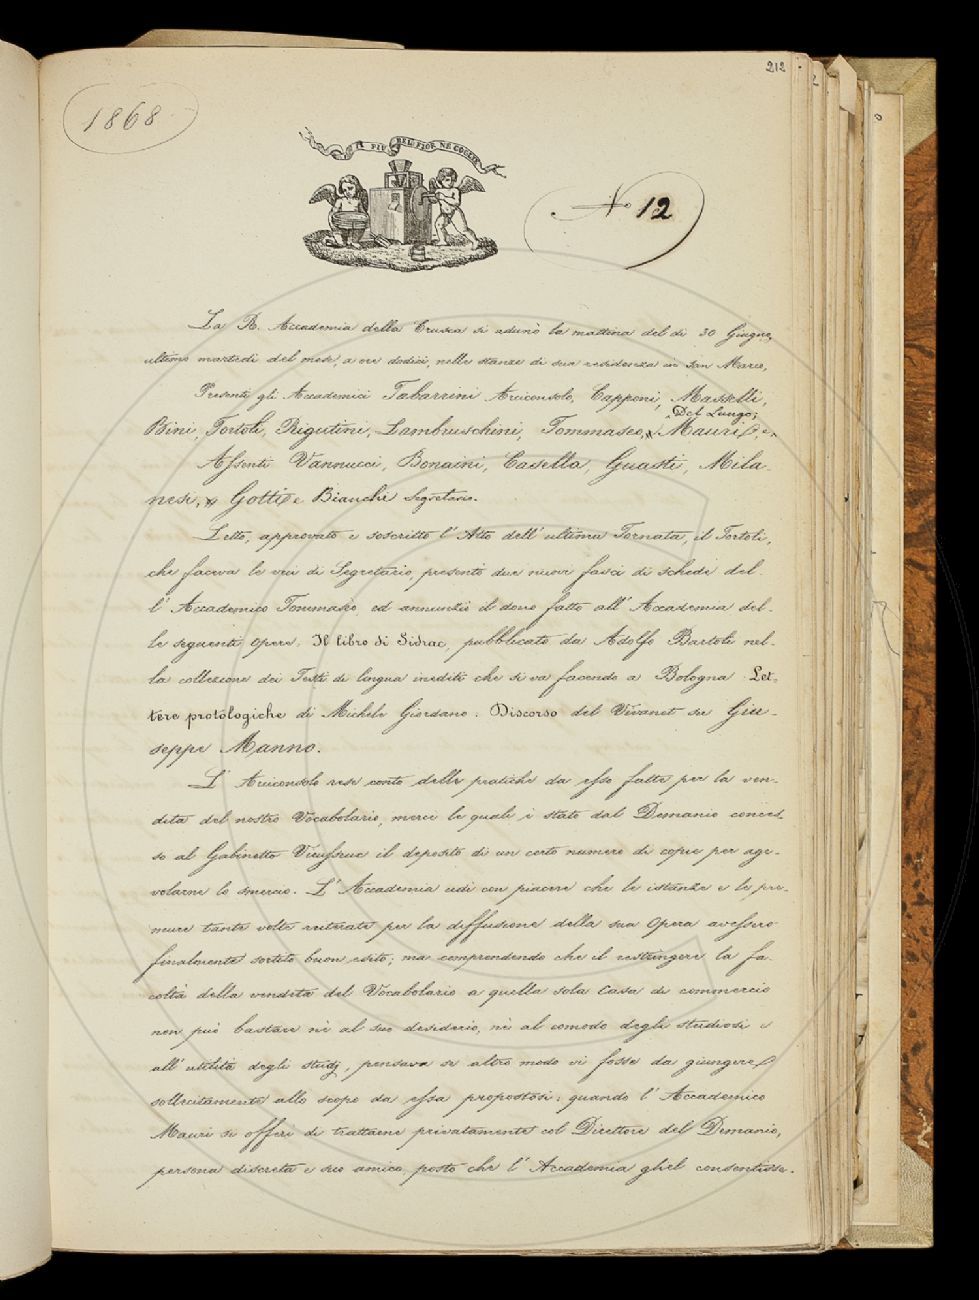 212
1868
IL PIU BEL FIOR NE COGLIE
N° 12
La R. Accademia della Crusca si adunò la mattina del dì 30 Giugno,
ultimo martedì del mese, a ore dodici, nelle stanze di sua residenza in San Marco,
Presenti gli Accademici Tabarrini Arciconsolo, Capponi, Masselli,
Del Lungo;
Bini, Tortoli, Rigutini, Lambruschini, Tommaseo, Mauri
Assenti Vannucci, Bonaini, Casella, Guasti, Mila-
nesi, Gotti e Bianchi Segretario.
Letto, approvato e soscritto l'Atto dell'ultima Tornata, il Tortoli,
che faceva le veci di Segretario, presentò due nuovi fasci di schede del-
l'Accademico Tommasèo ed annunziò il dono fatto all'Accademia del-
le seguenti opere, Il libro di Sidrac, pubblicato da Adolfo Bartoli nel-
la collezione dei Testi di lingua inediti che si va facendo a Bologna: Let-
tere protologiche di Michele Giordano: Discorso del Vivanet su Giu-
seppe Manno.
L'Arciconsolo rese conto delle pratiche da esso fatte per la ven-
dita del nostro Vocabolario, mercè le quali è stato dal Demanio conces-
so al Gabinetto Vieusseux il deposito di un certo numero di copie per age-
volarne lo smercio. L'Accademia udì con piacere che le istanze e le pre-
mure tante volte reiterate per la diffusione della sua Opera avessero
finalmente sortito buon esito; ma comprendendo che il restringere la fa-
coltà della vendita del Vocabolario a quella sola Casa di commercio
non può bastare nè al suo desiderio, nè al comodo degli studiosi e
all'utilità degli studj, pensava se altro modo vi fosse da giungere
sollecitamente allo scopo da essa propostosi: quando l'Accademico
Mauri si offerì di trattarne privatamente col Direttore del Demanio,
persona discreta e suo amico, posto che l'Accademia gliel consentisse.